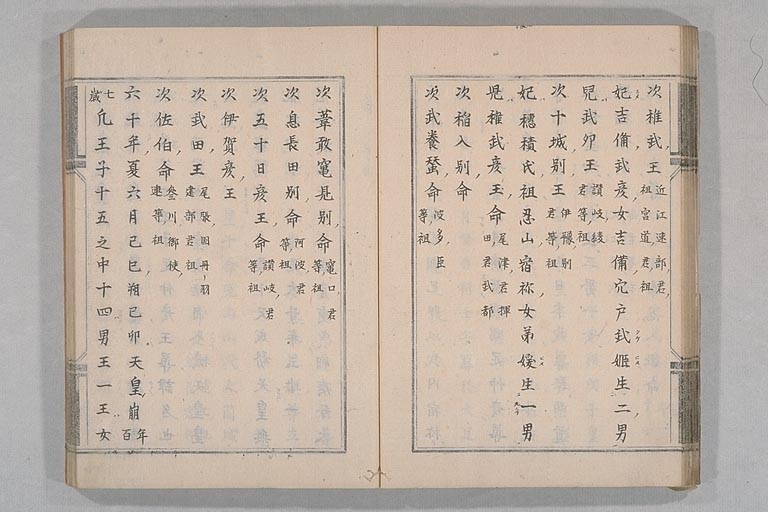 次稚武王近江建部君祖宮道君祖
妃吉備武彦女吉備穴戸武姫生二男
兒武卯王讃岐綾君等祖
次十城別王伊豫別君等祖
妃穂積氏祖忍山宿祢女弟媛生一男
児稚武彦王命尾津君揮田君武都
次稲入別命
次武養蚕命波多臣等祖
次葦敢竈見別命竈口君等祖
次息長田別命阿波君等祖
次五十日彦王命讃岐君等祖
次伊賀彦王
次武田王尾張国丹羽建部君祖
次佐伯命参川御使連等祖
六十年夏六月己巳朔己卯天皇崩年百
七歳凢王子十五之中十四男王一王女